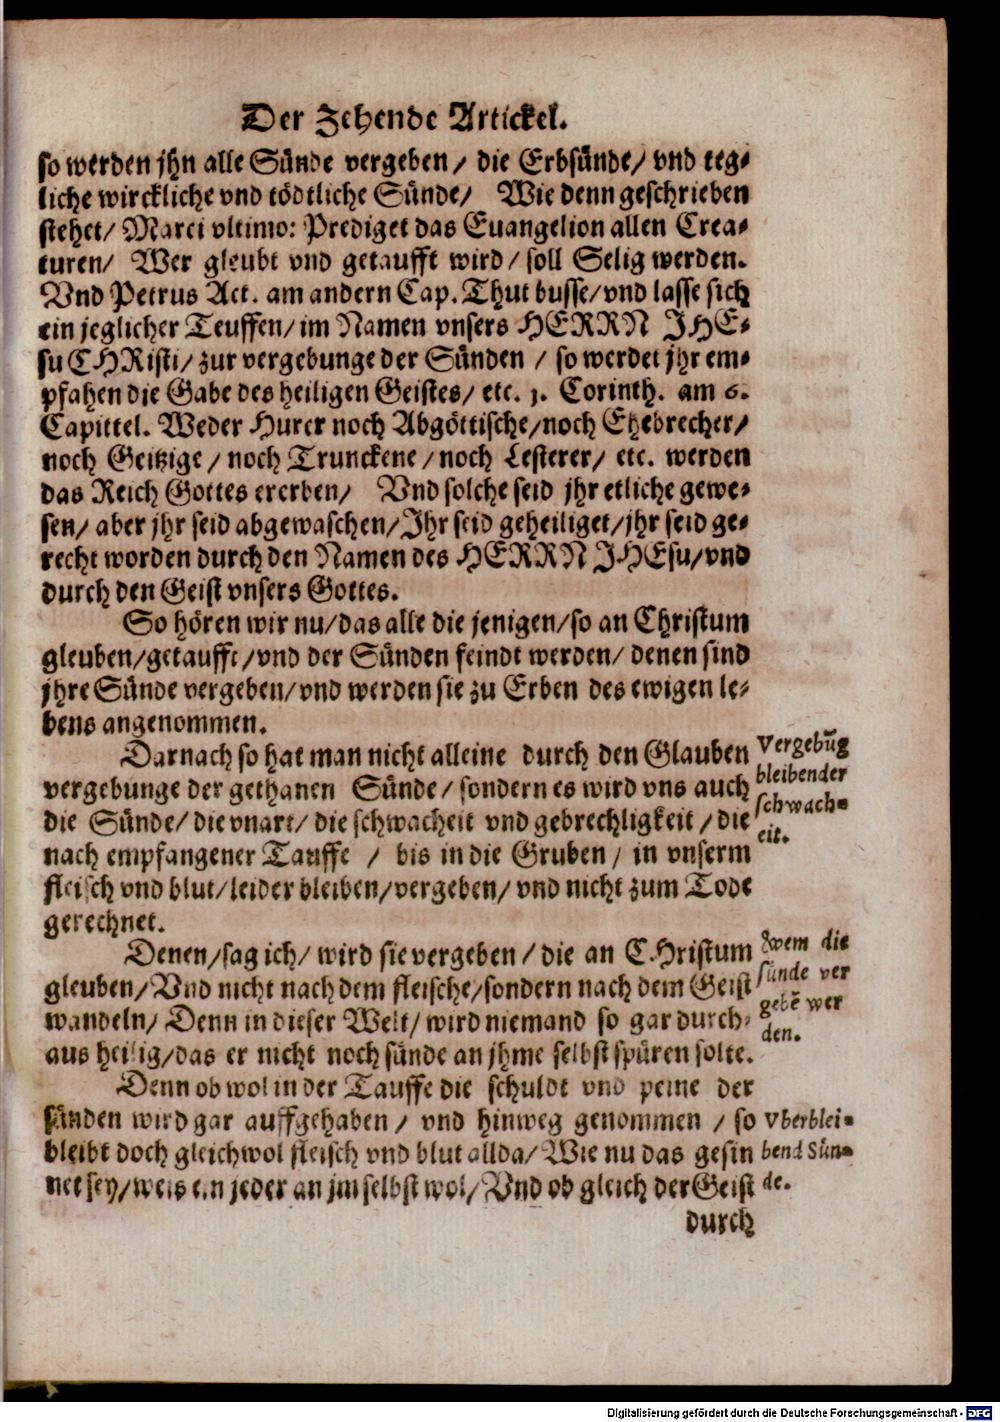 Der Zehende Artickel.
so werden jhn alle Sünde vergeben/ die Erbsünde/ vnd teg-
liche wirckliche vnd tödtliche Sünde/ Wie denn geschrieben
stehet/ Marci vltimo: Prediget das Euangelion allen Crea-
turen/ Wer gleubt vnd getaufft wird/ soll Selig werden.
Vnd Petrus Act. am andern Cap. Thut busse/ vnd lasse sich
ein jeglicher Teuffen/ im Namen vnsers HERRN JHE-
su CHRisti/ zur vergebunge der Sünden / so werdet jhr em-
pfahen die Gabe des heiligen Geistes/ etc. 1. Corinth. am 6.
Capittel. Weder Hurer noch Abgöttische/ noch Ehebrecher/
noch Geitzige / noch Trunckene / noch Lesterer/ etc. werden
das Reich Gottes ererben/ Vnd solche seid jhr etliche gewe-
sen/ aber jhr seid abgewaschen/ Jhr seid geheiliget/ jhr seid ge-
recht worden durch den Namen des HERRN JHEsu/ vnd
durch den Geist vnsers Gottes.
So hören wir nu/ das alle die jenigen/ so an Christum
gleuben/ getaufft/ vnd der Sünden feindt werden/ denen sind
jhre Sünde vergeben/ vnd werden sie zu Erben des ewigen le-
bens angenommen.
Darnach so hat man nicht alleine durch den Glauben
vergebunge der gethanen Sünde/ sondern es wird vns auch
die Sünde/ die vnart/ die schwacheit vnd gebrechligkeit / die
nach empfangener Tauffe / bis in die Gruben / in vnserm
fleisch vnd blut/ leider bleiben/ vergeben/ vnd nicht zum Tode
gerechnet.
Vergebūg
bleibender
schwach-
eit.
Denen/ sag ich/ wird sie vergeben / die an CHristum
gleuben/ Vnd nicht nach dem fleische/ sondern nach dem Geist
wandeln/ Denn in dieser Welt/ wird niemand so gar durch-
aus heilig/ das er nicht noch sünde an jhme selbst spüren solte.
Wem die
sünde ver
gebē wer
den.
Denn ob wol in der Tauffe die schuldt vnd peine der
sünden wird gar auffgehaben / vnd hinweg genommen / so
bleibt doch gleichwol fleisch vnd blut allda/ Wie nu das gesin
net sey/ weis ein jeder an jm selbst wol/ Vnd ob gleich der Geist
Vberblei-
bend Sün-
de.
durch
Digitalisierung gefördert durch die Deutsche Forschungsgemeinschaft - DFG